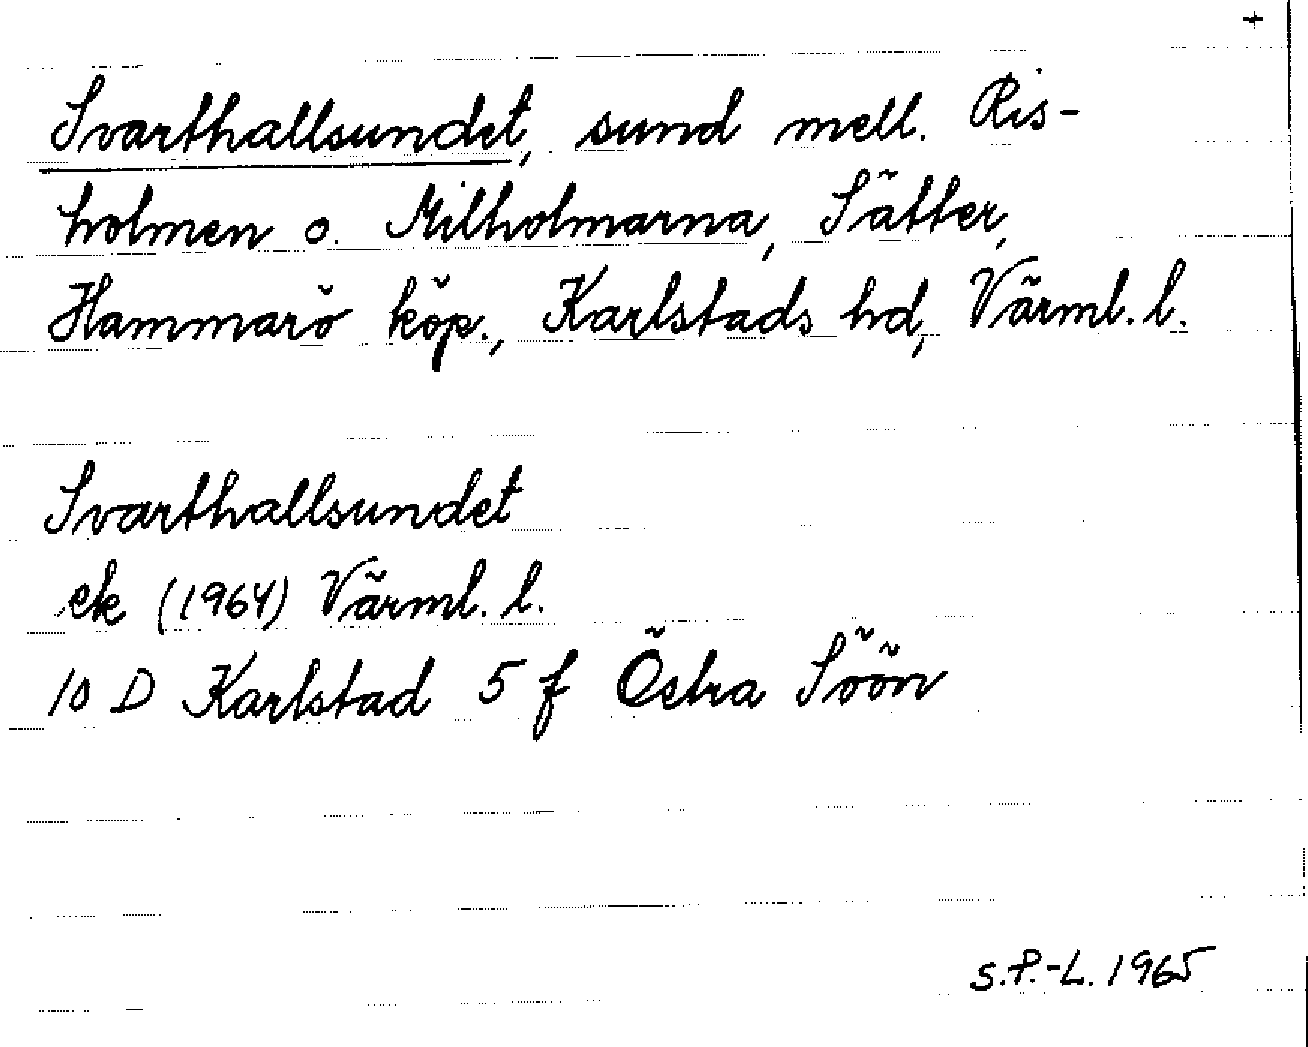 +
Svarthallsundet, sund mell. Ris-
holmen o. Milholmarna, Sätter,
Hammarö köp., Karlstads hd, Värml. l.
Svarthallsundet
ek (1964) Värml. l.
10 D Karlstad 5 f Östra Söön
S.P.-L. 1965